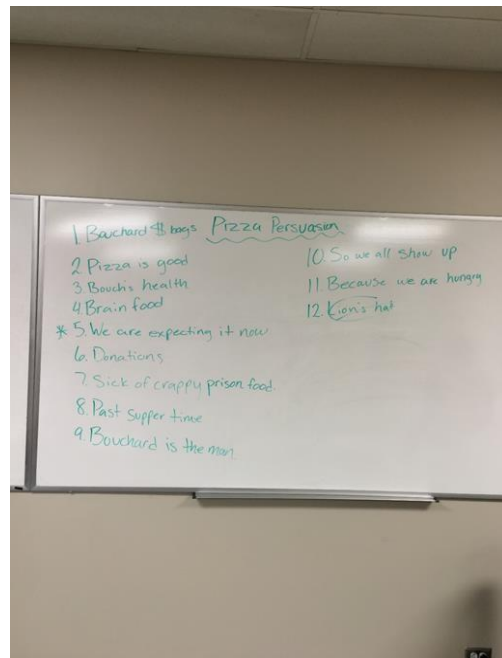 Pizza Persuasion
1 Bouchard $ bags
2 Pizza is good
3. Bouch's health
4. Brain food
* 5. We are expecting it now
6. Donations
7. Sick of crappy prison food.
8. Past supper time
9. Bouchard is the man
10. So we all show up
11 Because we are hungry
12. Kion's hat